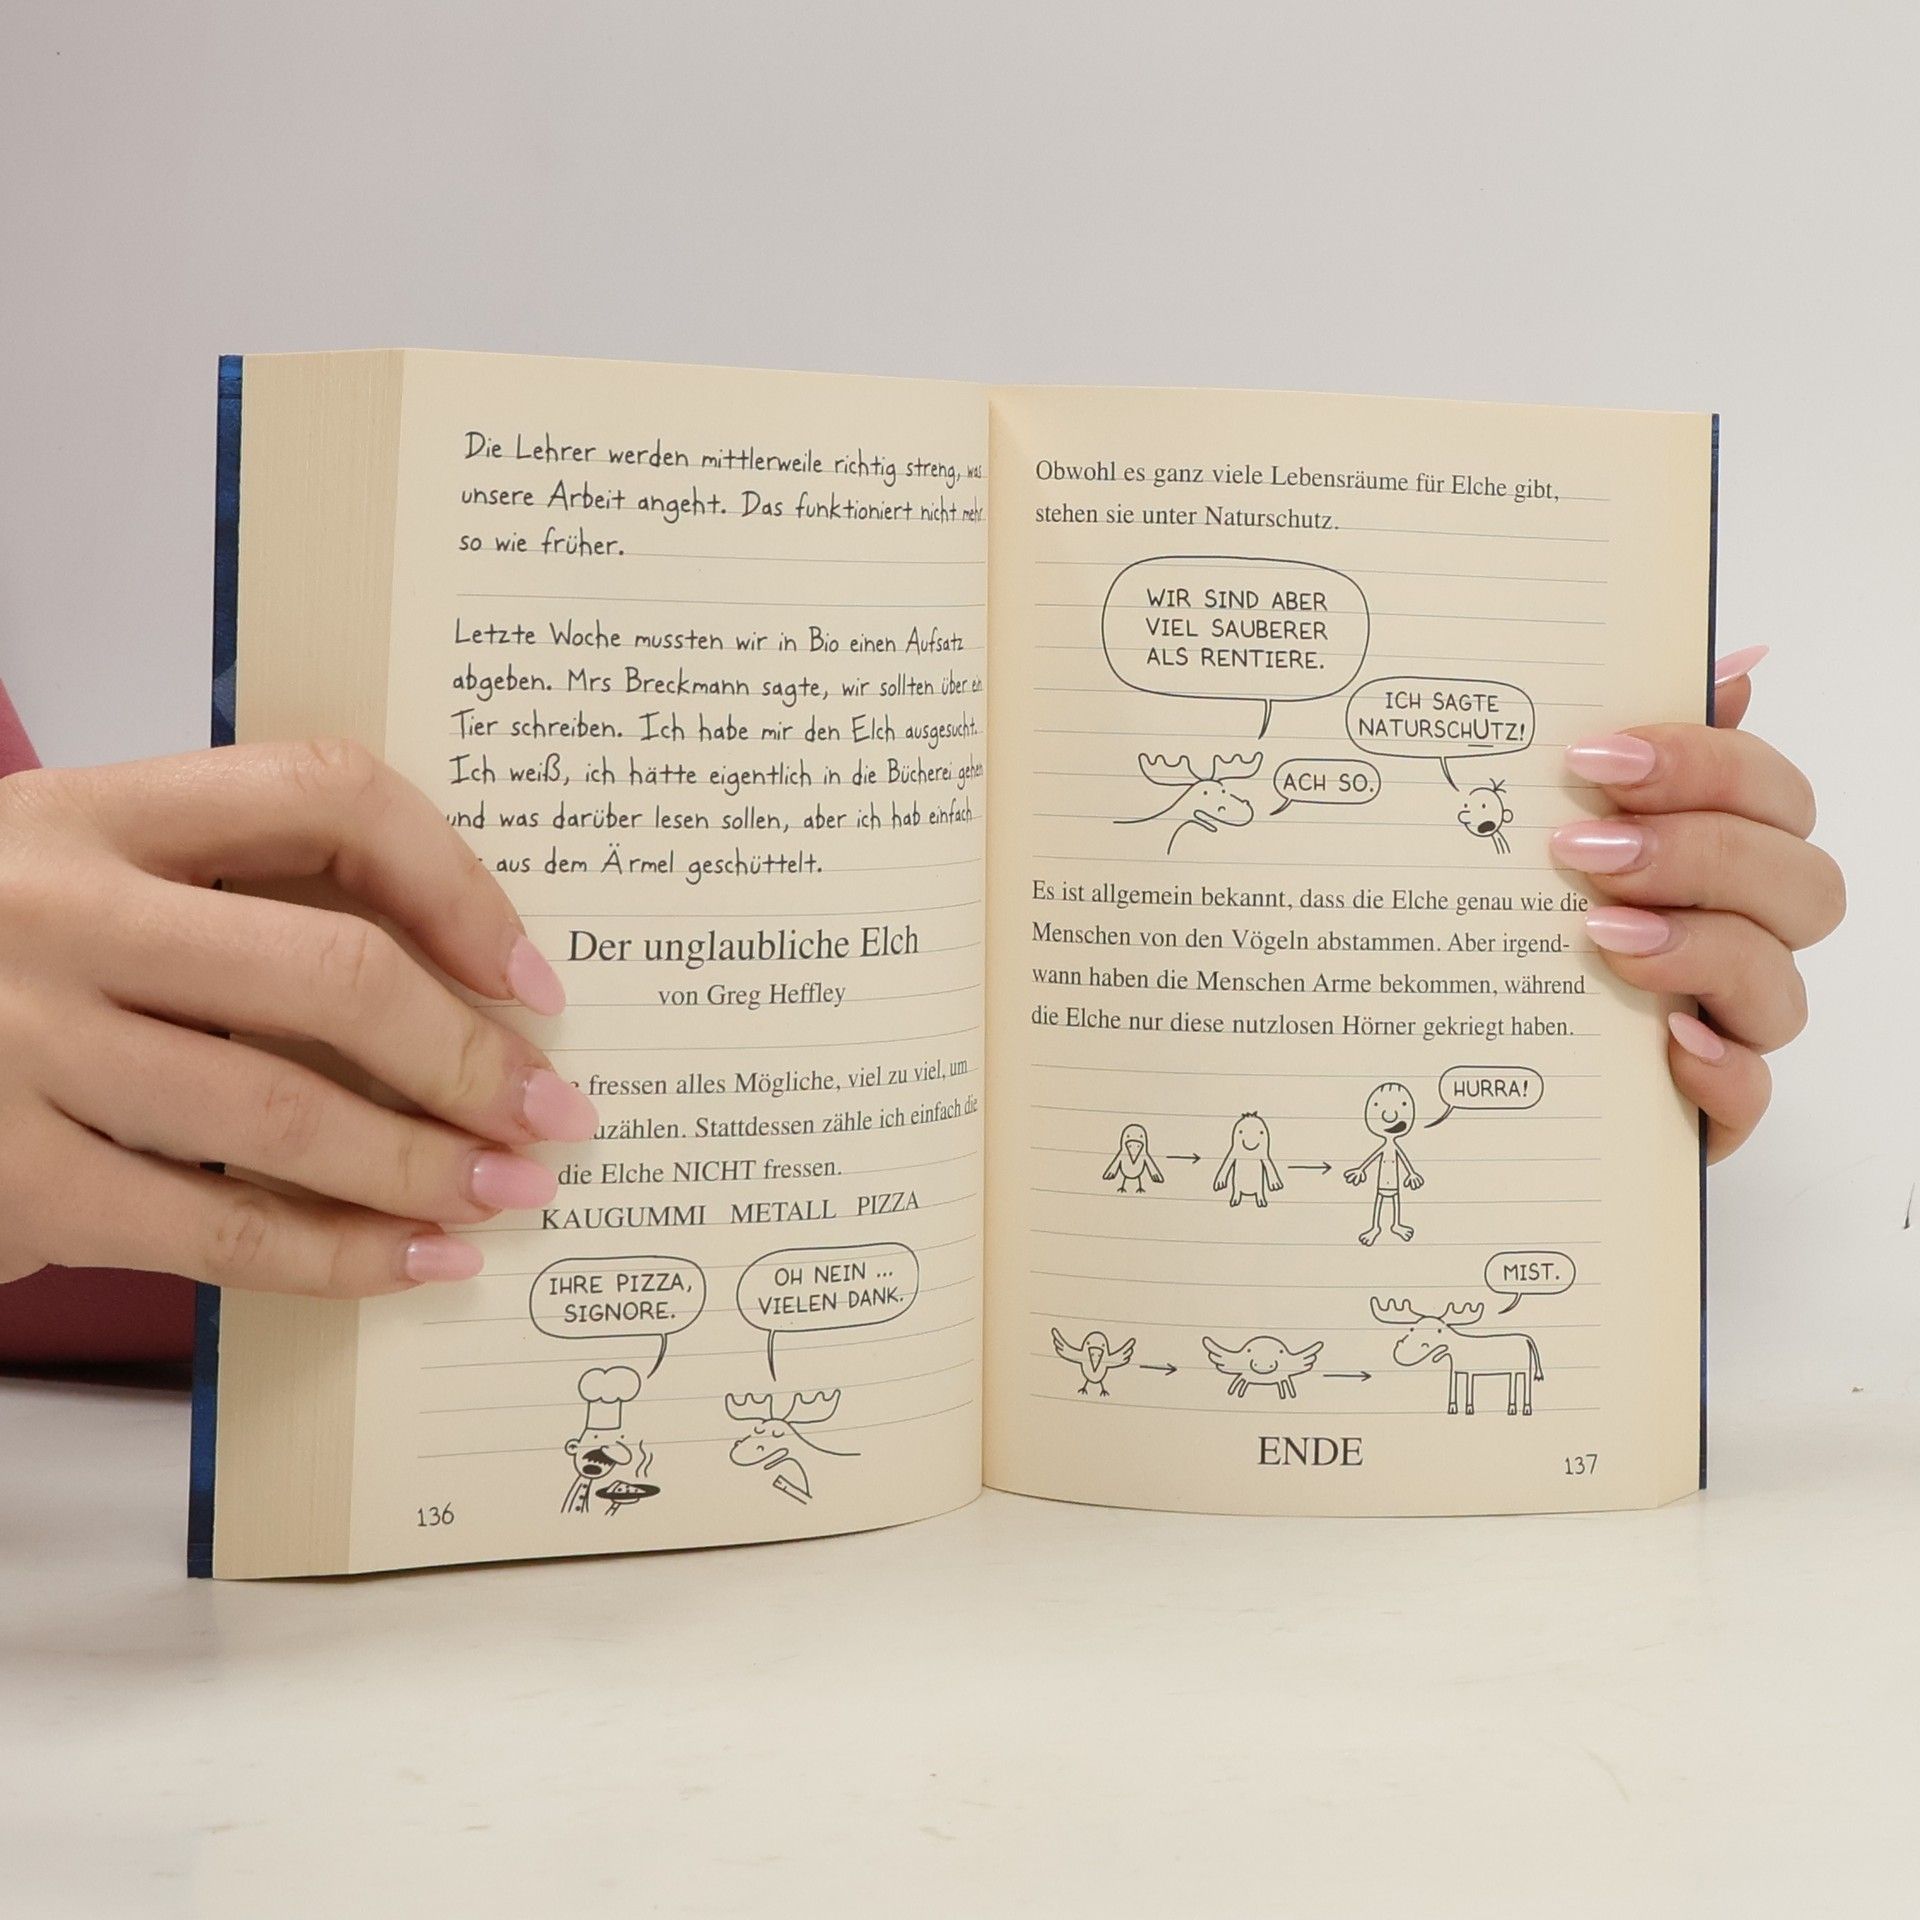 Die Lehrer werden mittlerweile richtig streng, was
unsere Arbeit angeht. Das funktioniert nicht mehr
so wie früher.
Letzte Woche mussten wir in Bio einen Aufsatz
abgeben. Mrs Breckmann sagte, wir sollten über ein
Tier schreiben. Ich habe mir den Elch ausgesucht.
Ich weiß, ich hätte eigentlich in die Bücherei gehen
und was darüber lesen sollen, aber ich hab einfach
aus dem Ärmel geschüttelt.
Der unglaubliche Elch
von Greg Heffley
fressen alles Mögliche, viel zu viel, um
Stattdessen zähle ich einfach die
die Elche NICHT fressen.
KAUGUMMI METALL PIZZA
IHRE PIZZA,
SIGNORE.
OH NEIN ...
VIELEN DANK.
136
Obwohl es ganz viele Lebensräume für Elche gibt,
stehen sie unter Naturschutz.
WIR SIND ABER
VIEL SAUBERER
ALS RENTIERE.
ICH SAGTE
NATURSCHUTZ!
ACH SO.
Es ist allgemein bekannt, dass die Elche genau wie die
Menschen von den Vögeln abstammen. Aber irgend-
wann haben die Menschen Arme bekommen, während
die Elche nur diese nutzlosen Hörner gekriegt haben.
HURRA!
MIST.
ENDE
137